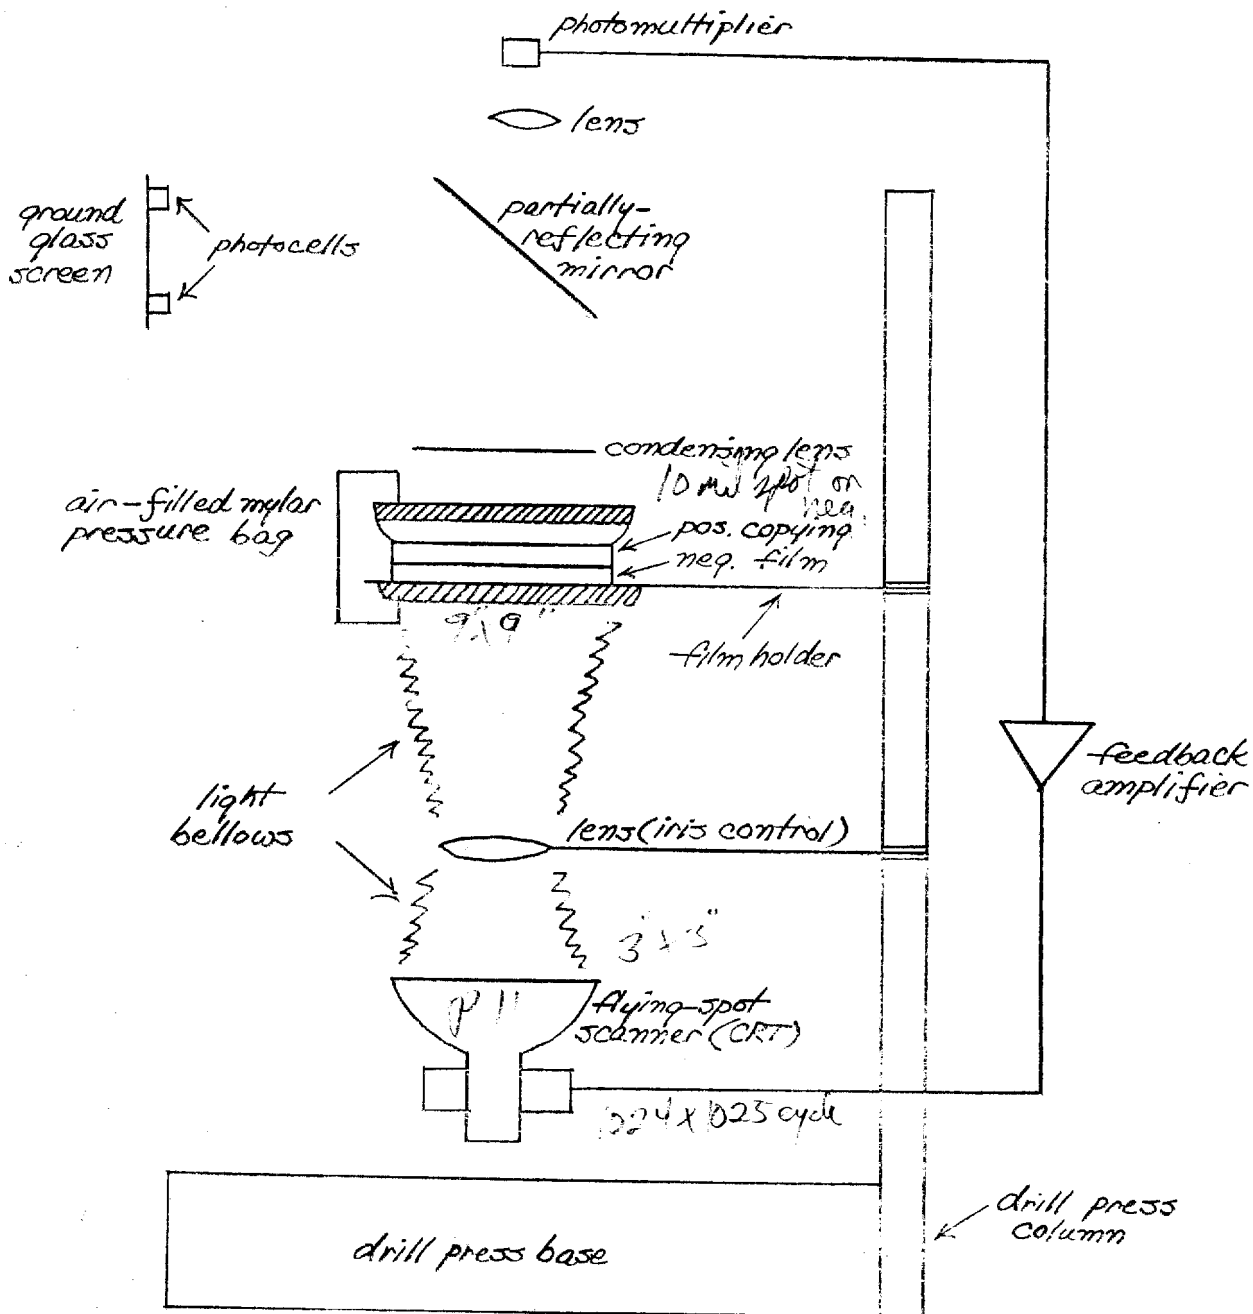 photomultiplier
lens
ground
glass
screen
photocells
partially-
reflecting
mirror
condensing lens
10 mil spot on
neg.
air-filled mylar
pressure bag
pos. copying
neg. film
9"x9"
film holder
feedback
amplifier
light
bellows
lens (iris control)
3"x3"
P11
flying-spot
scanner (CRT)
1024 x 1025 cycle
drill press
column
drill press base